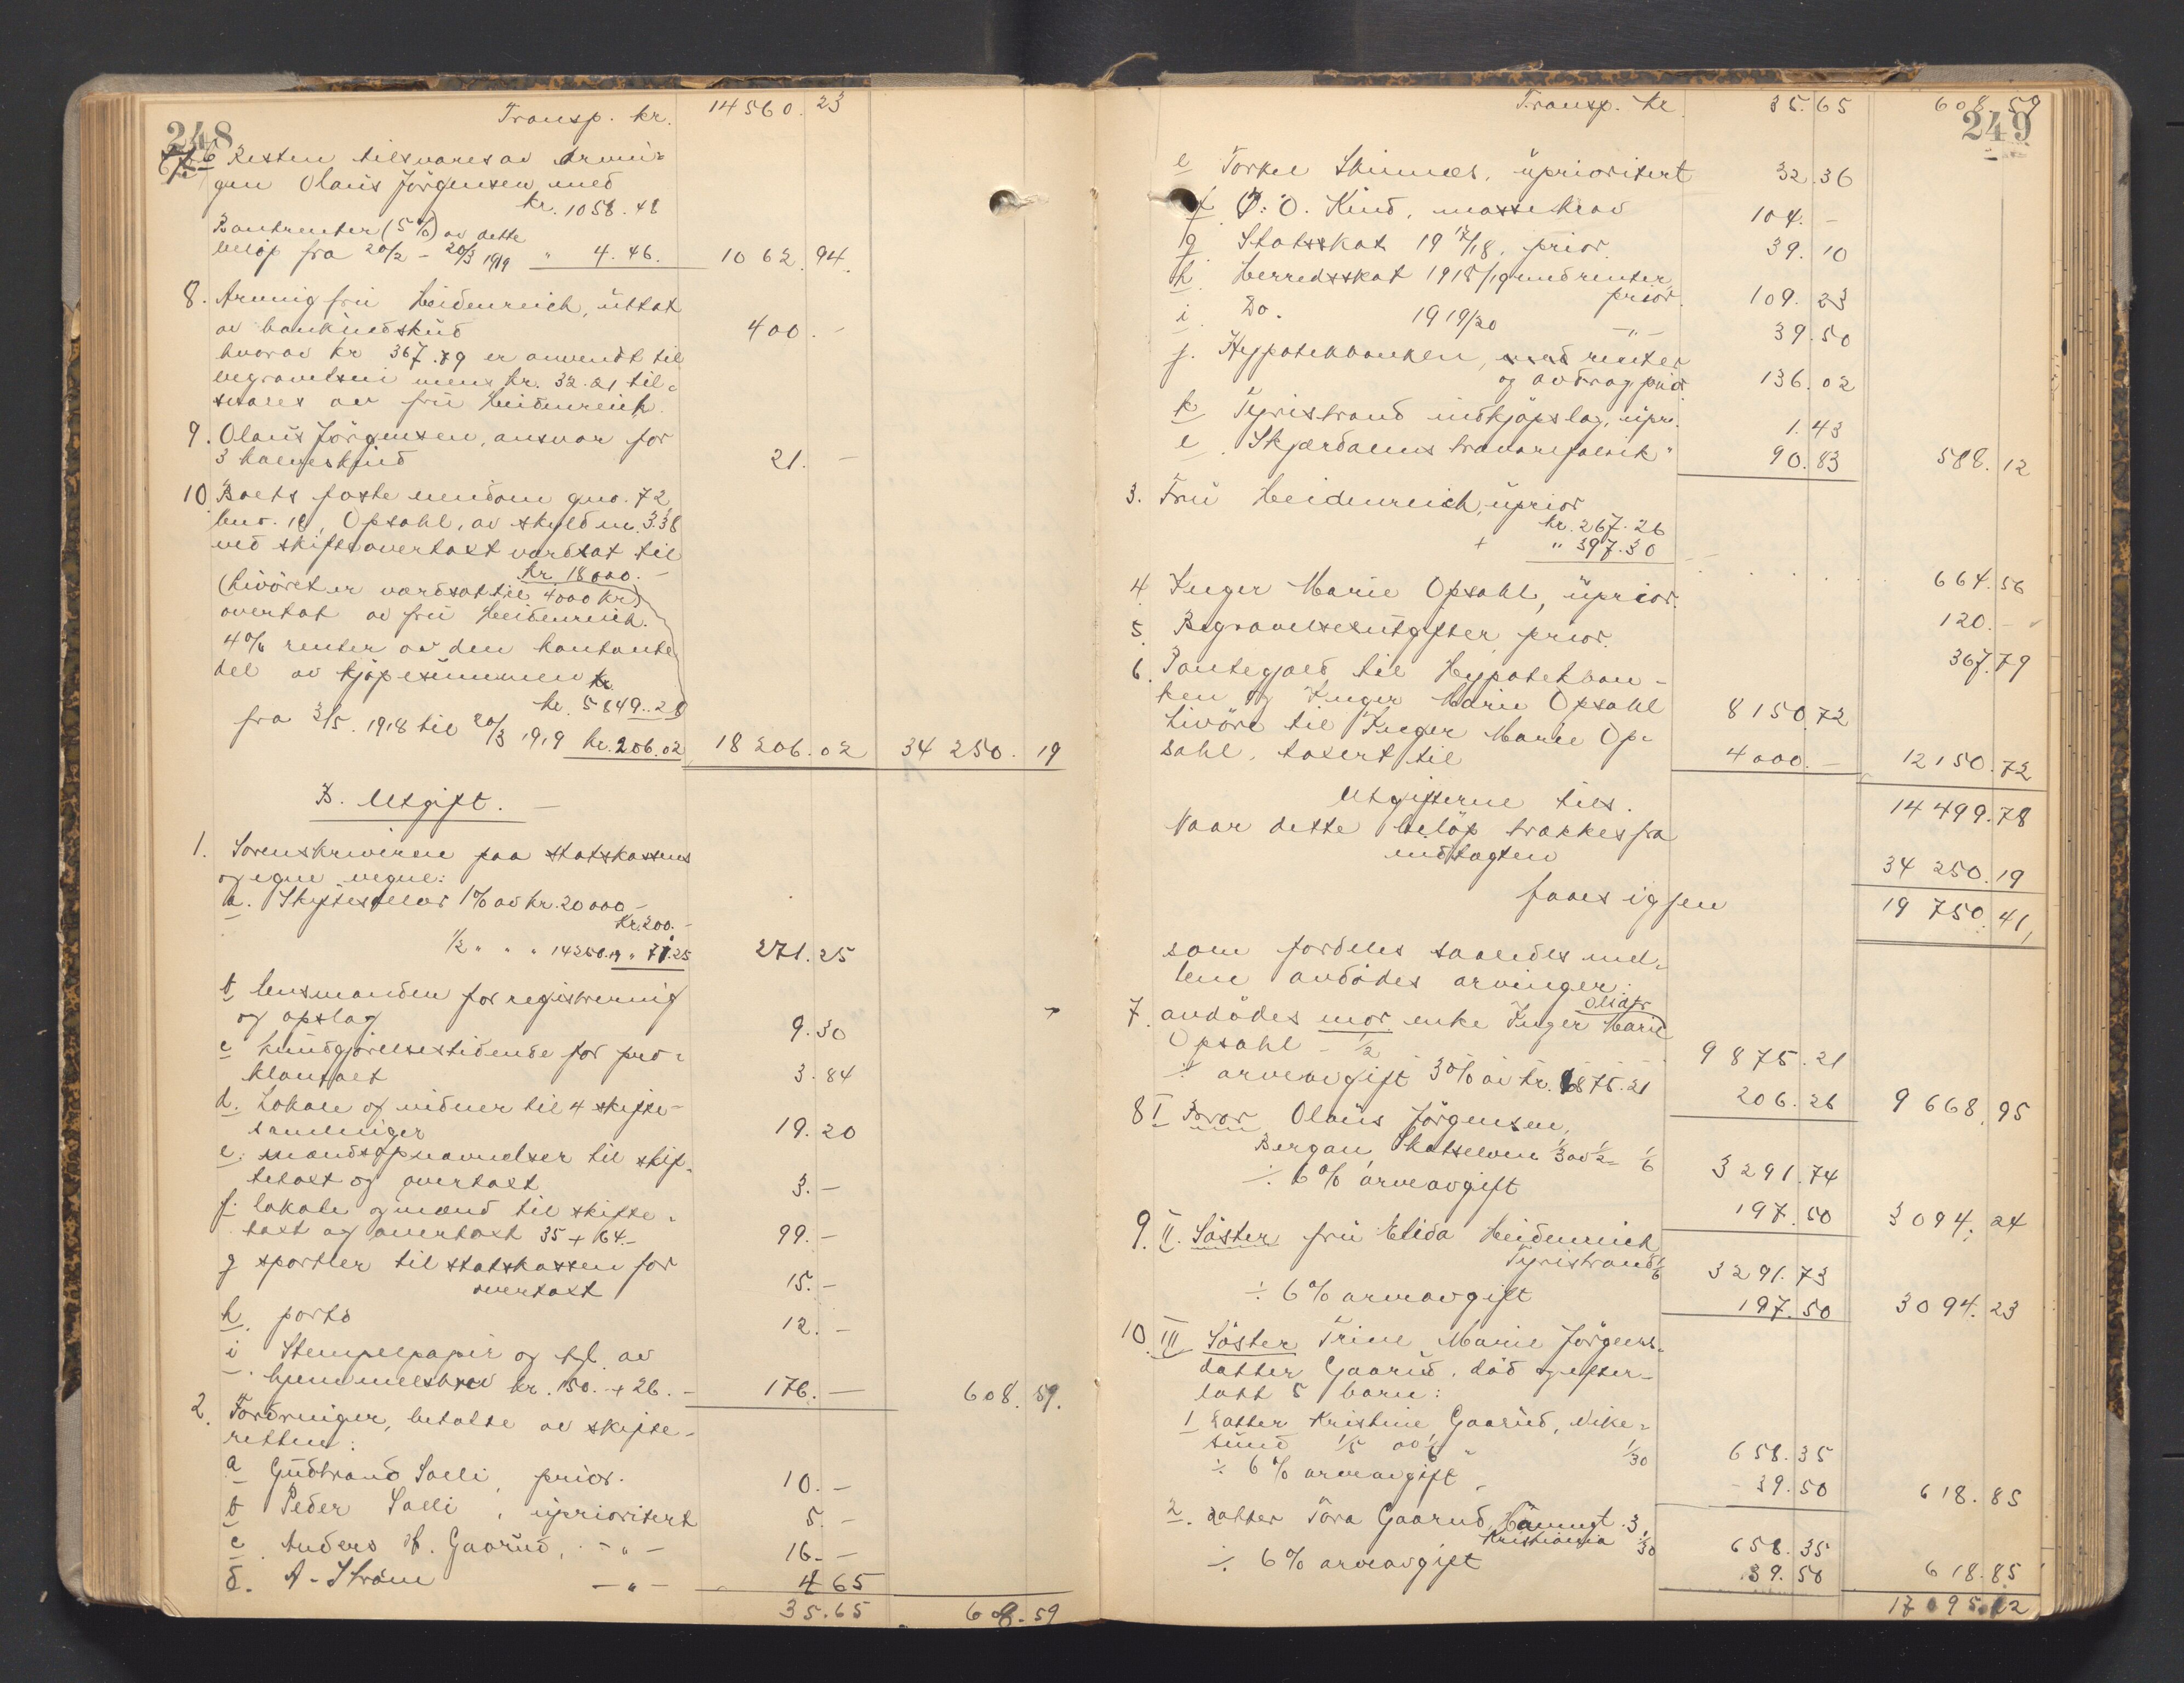 248
Transp. kr. 14560.23
7 b Resten tilsvares av Arvin-
gen Olaüs Jörgensen med
kr. 1058.48
Bankrenter (5%) av dette
belöp fra 20/2 - 20/3 1919 " 4.46. 1062.94.
8. Arving frü Heidenreich, üttat
av bankindsküd 400.-
hvorav kr 367.79 er anvendt til
begravelsen mens kr. 32.21 til-
svares av frü Heidenreich.
9. Olaüs Jörgensen, ansvar for
3 kalveskind 21.-
10 Boets faste eiendom gno. 72
bno. 18, Opsahl, av skyld m. 3.38
ved skifteovertaxt værdsat til
kr. 18000.-
(Livöret er værdsat til 4000 kr)
overtat av frü Heidenreich.
4% renter av den kontante
del av kjöpesümmen kr
kr. 5849.28
fra 3/5. 1918 til 20/3 1919 kr. 206.02 18206.02 34250.19
B. Utgift.-
1. Sorenskriveren paa statskassens
og egne vegne:
a. Skiftesalær 1% av kr. 20000.-
kr. 200.-
1/2 " " " 14250.19 " 71.25 271.25
b lensmanden for registrering
og opslag 9.30
c kündgjörelsestidende for pro-
klamaet 3.84
d. Lokale og vidner til 4 skifte-
samlinger 19.20
e. mandsopnævnelser til skif-
tetaxt og overtaxt 3.-
f. lokale og mænd til skifte-
taxt og overtaxt 35 + 64.- 99.-
g sportler til statskassen for
overtaxt 15.-
h. porto 12.-
i Stempelpapir og tgl. av
hjemmelsbrev kr. 150.- + 26.- 176.- 608.59.
2. Fordringer, betalte av skifte-
retten:
a Güdbrand Solli, prior. 10.-
b Peder Solli, üprioritert 5.-
c Anders H. Gaarüd, -"- 16.-
d. A. Ström -"- 4 65
35.65 608.59
249
Transp. kr. 35.65 608.59
e Torkel Skinnes, üprioritert 32.36
f O. Kind, massekrav 104.-
g Statsskat 19 17/18, prior. 39.10
h Herredsskat 1918/19 undrenter,
prior. 109.23
i Do. 1919/20 -"- 39.50
j. Hypotekbanken, renter
og avdrag prior. 136.02
k Tyristrand indkjöpslag, üpr. 1.43
l Skjærdalens travarefabrik " 90.83 588.12
3. Frü Heidenreich, üprior
kr. 267.26
+ " 397.30
664.56
4. Inger Marie Opsahl, üprior. 120.-
5. Begravelsesutgifter, prior. 367.79
6. Pantegjæld til Hypotekban-
ken og Inger Marie Opsahl 8150.72
Livöre til Inger Marie Op-
sahl, taxert til 4000.- 12150.72
Utgifterne tils. 14499.78
Naar dette belöp trækkes fra
indtægten 34250.19
faaes igjen 19750.41,
som fordeles saaledes mel-
lem avdödes arvinger:
7. avdödes mor enke Inger Marie Olsdtr
Opsahl - 1/2 9875.21
÷ arveavgift 3% av kr. 6875.21 206.26 9668.95
8 I Bror Olaüs Jörgensen,
Bergan, Skotselven 1/3 av 1/2 = 1/6 3291.74
÷ 6% arveavgift 197.50 3094.24
9. II. Söster frü Elida Heidenreich
Tyristrand 1/6 3291.73
÷ 6% arveavgift 197.50 3094.23
10. III Söster Trine Marie Jörgens-
datter Gaarüd, död og efter-
latt 5 barn:
1 datter Kristine Gaarüd, Vike-
sünd 1/5 av 1/6 " 1/30 658.35
÷ 6% arveavgift 39.50 618.85
2. datter Tora Gaarud, 3,
Kristiania 1/30 658.35
÷ 6% arveavgift 39.50 618.85
17095.12